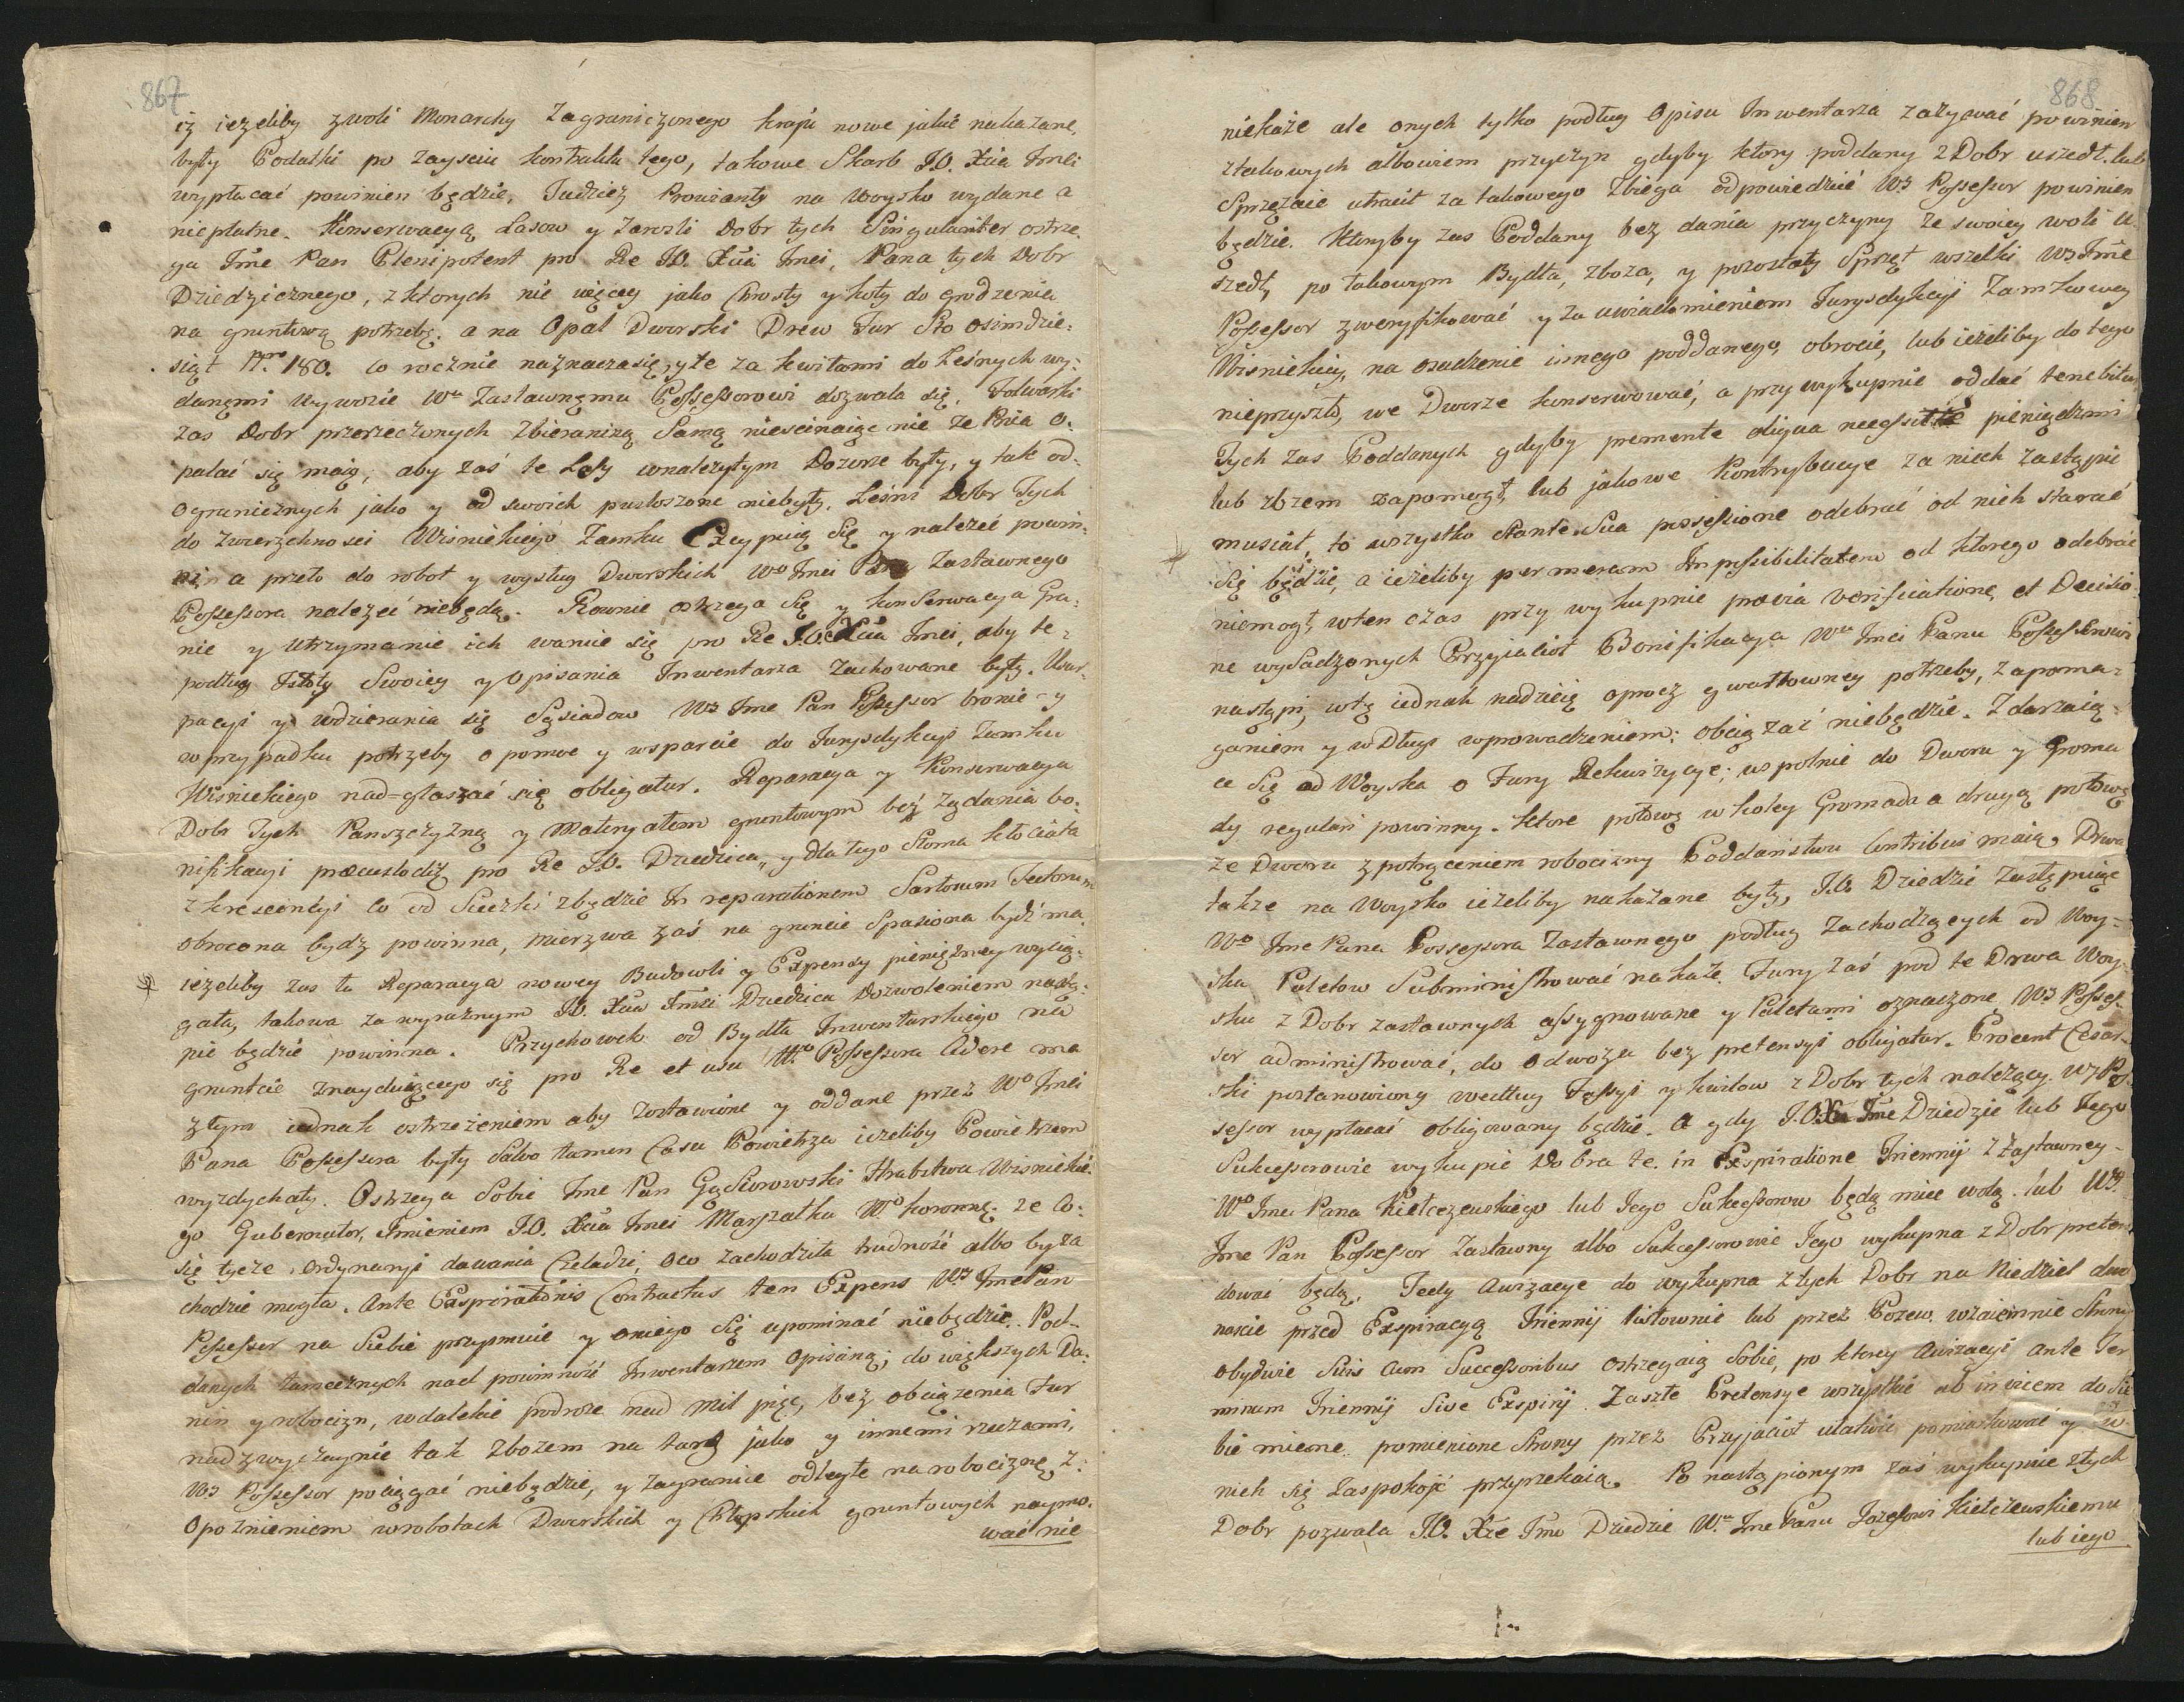 867
iż ieżeliby zwoli Monarchy Zagranicznego kraju nowe jakie nakazane,
były Podatki po zayściu kontraktu tego, takowe Skarb JO. Xcia Jmci
wypłacać powinien będzie, Tudzież Prowianty na Woysko wydane a
niepłatne. Konserwacyą Lasow y Zarosli Dobr tych Singulariter ostrze,
ga Jmć Pan Plenipotent pro Re JO. Xcia Jmci, Pana tych Dobr
Dziedzicznego, z ktorych nie więcey jako Chrosty y koły do grodzenia
na gruntową potrzebę, a na Opał Dworski Drew Fur Sto osimdzie:
siąt Nro 180. co rocznie naznacza się, y te za kwitami do Leśnych wy:
danęmi wywozić Wu Zastawnęmu Possessorowi dozwala się. Folwarki
zas Dobr przerzeczonych Zbieraniną Samą niescinaiąc nie ze Pnia o:
palać się maią, aby zaś te Lasy wnależytym Dozorze były, y tak od
ogranicznych jako y od swoich pustoszone niebyły. Leśni Dobr Tych
do Zwierzchności Wisnickiego Zamku Excypuią Się y należeć powin:
ni, a przeto do robot y wysług Dworskich Wo Jmci Pana Zastawnego
Possessora należeć niebędą. Rownie ostrzega Się y konserwacya Gra:
nic y utrzymanie ich waruie się pro Re J.O. Xcia Jmci, aby te:
podług Istoty Swoiey y Opisania Inwentarza zachowane były. Uzur:
pacyi y wdzierania się Sąsiadow WJ Jmc Pan Possessor bronić y
w przypadku potrzeby o pomoc y wsparcie do Jurysdykcyi Zamku
Wisnickiego nad-głaszać się obligatur. Reparacya y Konserwacya
Dobr Tych Panszczyzną y Materyałem gruntowym beź Żądania bo:
nifikacyi præcustodit pro Re J.O. Dziedzica, y dla tego Słoma kłociata
z krescencyi co od Sieczki zbędzie in reparationem Sartorum Tectorum
obrocona bydz powinna, mierzwa zaś na gruncie Spasiona bydź ma,
ieżeliby zas ta Reparacya nowey Budowli y Expensy pienięzney wycią:
gała, takowa za wyraznym JO. Xcia Jmci Dziedzica Dozwoleniem nastą:
pić będzie powinna. Przychowek od Bydła Inwentarskiego na
gruntcie znayduiącego się pro Re et usu Wgo Possessora Cedere ma
z tym iednak ostrzeżeniem aby zostawione y oddane przez Wo Jmci
Pana Possessora były Salvo tamen Casu Powietrza ieżeliby Powietrzem
wyzdychały. Ostrzega Sobie Jmc Pan Gąsiorowski Hrabstwa Wisnickie:
go Gubernator, Imieniem J.O. Xcia Jmci Marszałka Wo koronnę: ze Co:
się tycze ordynaryi dawania Czeladzi, oco zachodziła trudność albo by za
chodzić mogła. Ante Expirationis Contractus ten Expens WJ Jmc Pan
Possessor na Siebie przypmuie y oniego się upominać niebędzie. Pod-
danych tamecznych nad powinność Inwentarzem Opisaną, do większych Da:
nin y robocizn, w dalekie podroże nad mil pięć, bez obciążenia Fur
nadzwyczaynie tak Zbożem na targ jako y innemi rzeczami,
WJ Possessor pociągać niebędzie, y zagranice odległe na robociznę, z:
Opoznieniem w robotach Dworskich y Chłopskich gruntowych naymo.
wać nie
868
niekaże ale onych tylko podług Opisu Inwentarza zażywać powinien
z takowych albowiem przyczyn gdyby ktory poddany z Dobr uszedł. lub
Sprzęzaie utracił za takowego Zbiega odpowiedzić WJ Possessor powinien
będzie. Ktoryby zas Poddany bez dania przyczyny ze swoiey woli u.
szedł, po takowym Bydła, zboża, y pozostały Sprzęt wszelki WJ Jmć
Possessor zweryfikować y za uwiadomieniem Jurysdykcyi Zamkowey
Wisnickiey, na osadzenie innego poddanego, obrocić, lub ieżeliby do tego
nieprzyszło, we Dworze konserwować, a przy wykupnie oddać tenebitur
Tych zas Poddanych gdyby premente aliqua necessitate pieniędzmi
lub zbożem zapomogł, lub jakowe Kontrybucye za nich zastąpić
musiał, to wszystko stante Sua possessione odebrać od nich starać
Się będzie, a ieżeliby per meram Impossibilitatem od ktorego odebrać
niemogł, wten czas przy wykupnie prævia verificatione, et Decisio
ne wysadzonych Przyiaciół Bonifikacya Wu Jmci Panu Possessorowi
nastąpi, wtę iednak nadzieię oprocz gwałtowney potrzeby, zapoma:
ganiem y w Długi wprowadzeniem: obciążać niebędzie. Zdarzaią:
ce się od Woyska o Fury Rekwizycye; wspolnie do Dworu y Groma
dy regulari powinny. Ktore połowę w koley Gromada a drugą połowę
ze Dworu z potrąceniem robocizny Poddaństwu Contribui maią. Drwa
także na Woysko ieżeliby nakazane były, J.O. Dziedzic zastępuiąc
Wo Jmc Pana Possessora Zastawnego podług zachodzących od Woy-
ska Paletow Subministrować nakaże. Fury zaś pod te Drwa Woy-
sku z Dobr zastawnych assygnowane y Paletami oznaczone WJ Posses.
sor administrować, do odwozu bez pretensyi obligatur. Procent Cesar-
ski postanowiony według Fassyi y kwitow z Dobr tych należący. WJ Pos.
sessor wypłacać obligowany będzie. A gdy J.O.X. Jmc Dziedzic lub Jego
Sukcessorowie wykupić Dobra te. in Exspiratione Triennij z Zastawney-
Wo Jmci Pana Kiełczewskiego lub Jego Sukcessorow będą mieć wolą. lub WJ.
Jmc Pan Possessor Zastawny albo Sukcessorowie Jego wykupna z Dobr preten
dować będą, Tedy Awizacye do wykupna z tych Dobr na Niedziel dwa
naście przed Exspiracyą Triennij listownie lub przez Pozew. wzaiemnie Strony
obydwie Suis cum Successoribus ostrzegaią Sobie, po ktorey Awizacyi ante Ter
minum Triennij Sive Exspirij. Zaszłe Pretensye wszystkie ab invicem do Sie
bie mieone pomienione Strony przez Przyjaciół ułatwić pomiarkować y w-
nich się Zaspokoić przyrzekaią. Po nastąpionym zaś wykupnie z tych
Dobr pozwala J.O. Xże Jmc Dziedzic W. Jmc Panu Jozefowi Kiełczewskiemu
lub iego